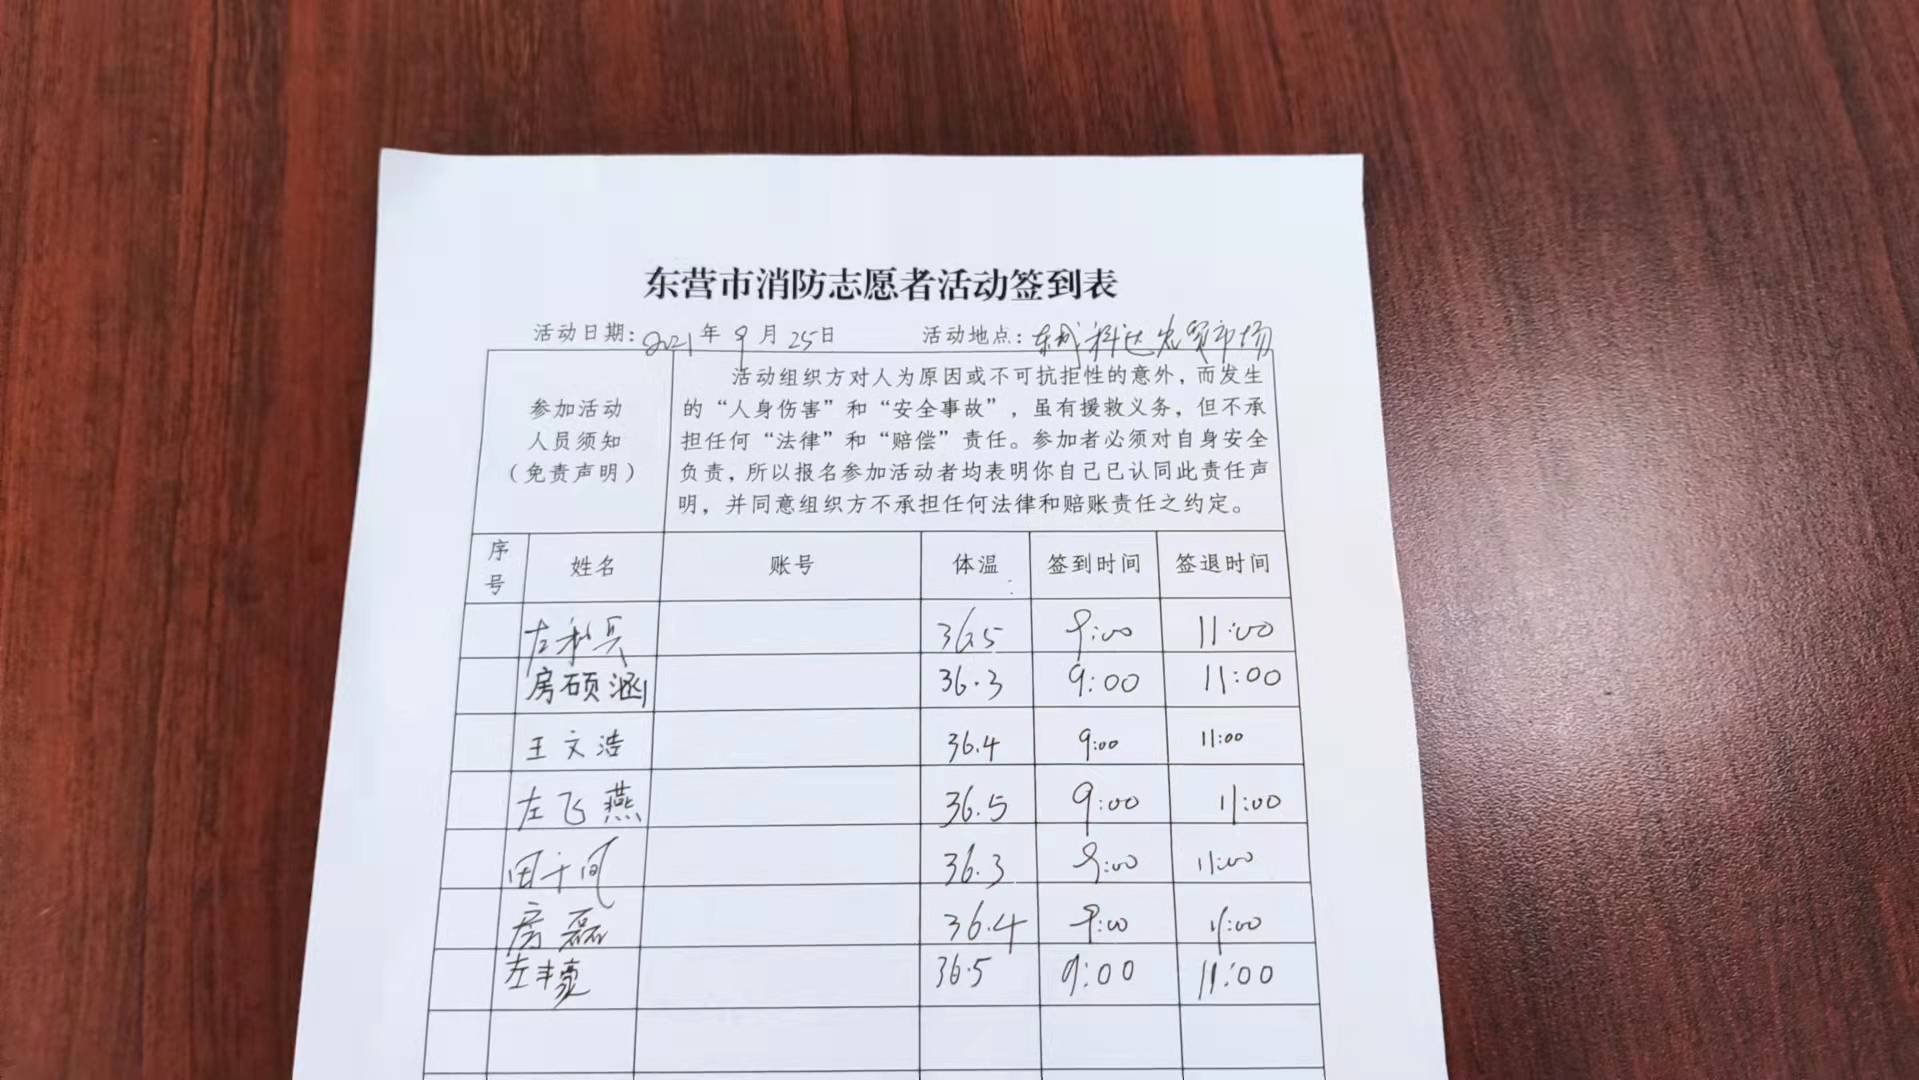 东营市消防志愿者活动签到表
活动日期:2021年9月25日 活动地点:东城科达农贸市场
参加活动
人员须知
(免责声明)
活动组织方对人为原因或不可抗拒性的意外,而发生
的“人身伤害”和“安全事故”,虽有援救义务,但不承
担任何“法律”和“赔偿”责任。参加者必须对自身安全
负责,所以报名参加活动者均表明你自己已认同此责任声
明,并同意组织方不承担任何法律和赔账责任之约定。
序号 姓名 账号 体温 签到时间 签退时间
左利兵 36.5 9:00 11:00
房硕涵 36.3 9:00 11:00
王文浩 36.4 9:00 11:00
左飞燕 36.5 9:00 11:00
田 36.3 9:00 11:00
房磊 36.4 9:00 11:00
左丰豪 36.5 9:00 11:00